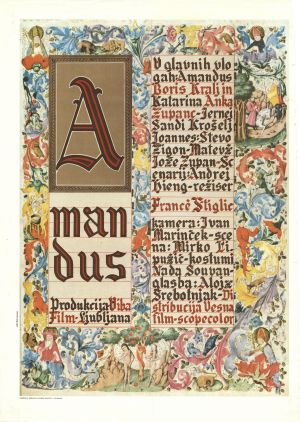 A
man
dus
Produkcija Viba
Film-Ljubljana
V glavnih vlo
gah: Amandus
Boris Kralj in
Katarina Anka
Zupanc-Jernej
Sandi Krošelj
Joannes: Stevo
Žigon-Matevž
Jože Zupan-Sc
enarij: Andrej
Hieng-režiser
Francè Štiglic
kamera: Ivan
Marinček-sce
na: Mirko Li
pužič-kostumi
Nada Souvan
glasba: Alojz
Srebotnjak-Di
stribucija Vesna
film-scopecolor